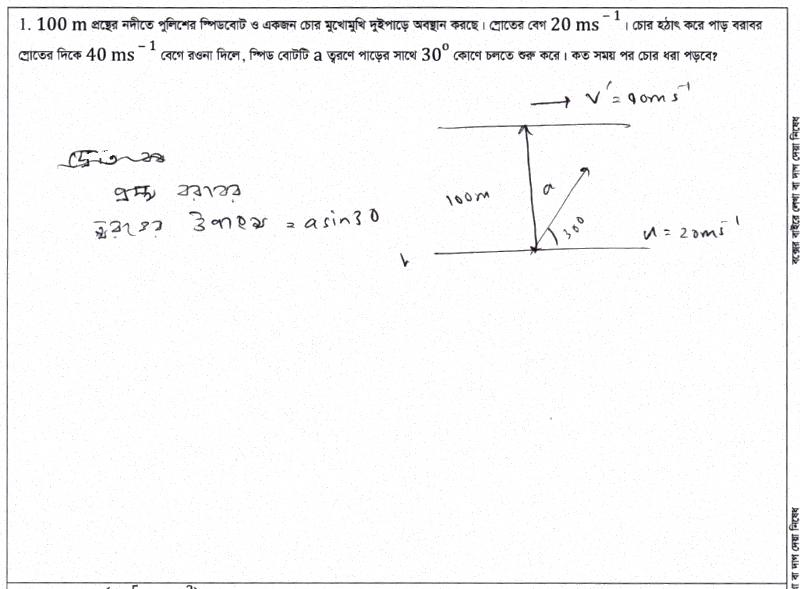 1. 100 m প্রস্থের নদীতে পুলিশের স্পিডবোট ও একজন চোর মুখোমুখি দুইপাড়ে অবস্থান করছে। স্রোতের বেগ 20 ms⁻¹। চোর হঠাৎ করে পাড় বরাবর
স্রোতের দিকে 40 ms⁻¹ বেগে রওনা দিলে, স্পিড বোটটি a ত্বরণে পাড়ের সাথে 30° কোণে চলতে শুরু করে। কত সময় পর চোর ধরা পড়বে?
প্রস্থ বরাবর
ত্বরণের উপাংশ = a sin30
→ v' = 40ms⁻¹
100m
a
30°
u = 20ms⁻¹
বক্সের বাইরে লেখা বা দাগ দেয়া নিষেধ
বা দাগ দেয়া নিষেধ